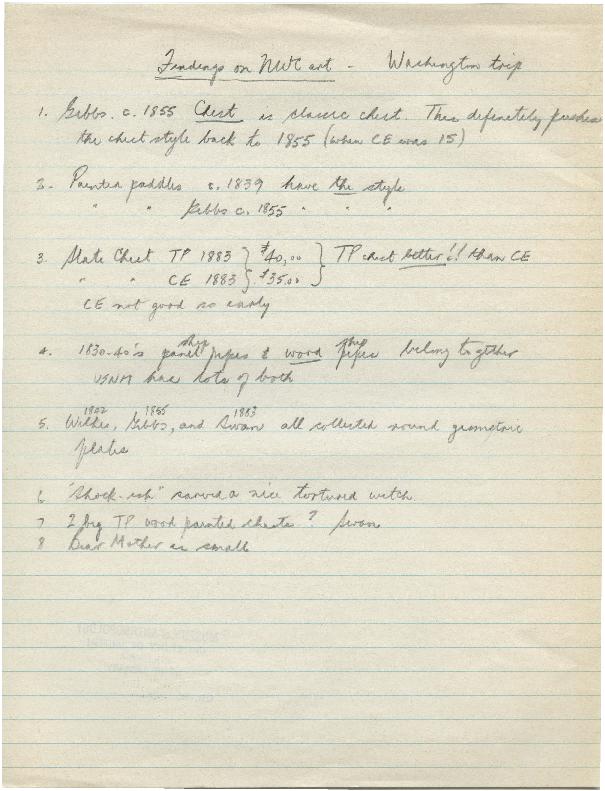 Findings on NWC art - Washington trip
1. Gibbs. c. 1855 Chest is classic chest. This definitely pushes
the chest style back to 1855 (when CE was 15)
2- Painted paddles c. 1839 have the style
" " Gibbs c. 1855 " " "
3. Slate Chest TP 1883 } $40.00 } TP chest better!! than CE
" " CE 1883 } $35.00
CE not good so early
4. 1830-40's panel ship pipes & wood ship pipes belong together
USNM has lots of both
5. Wilkes, Gibbs, 1855 and Swan 1883 all collected round geometric
plates
6 "Shock-ish" carved a nice tortured witch.
7 2 big TP wood painted chests? Swan
8 Bear Mother is small